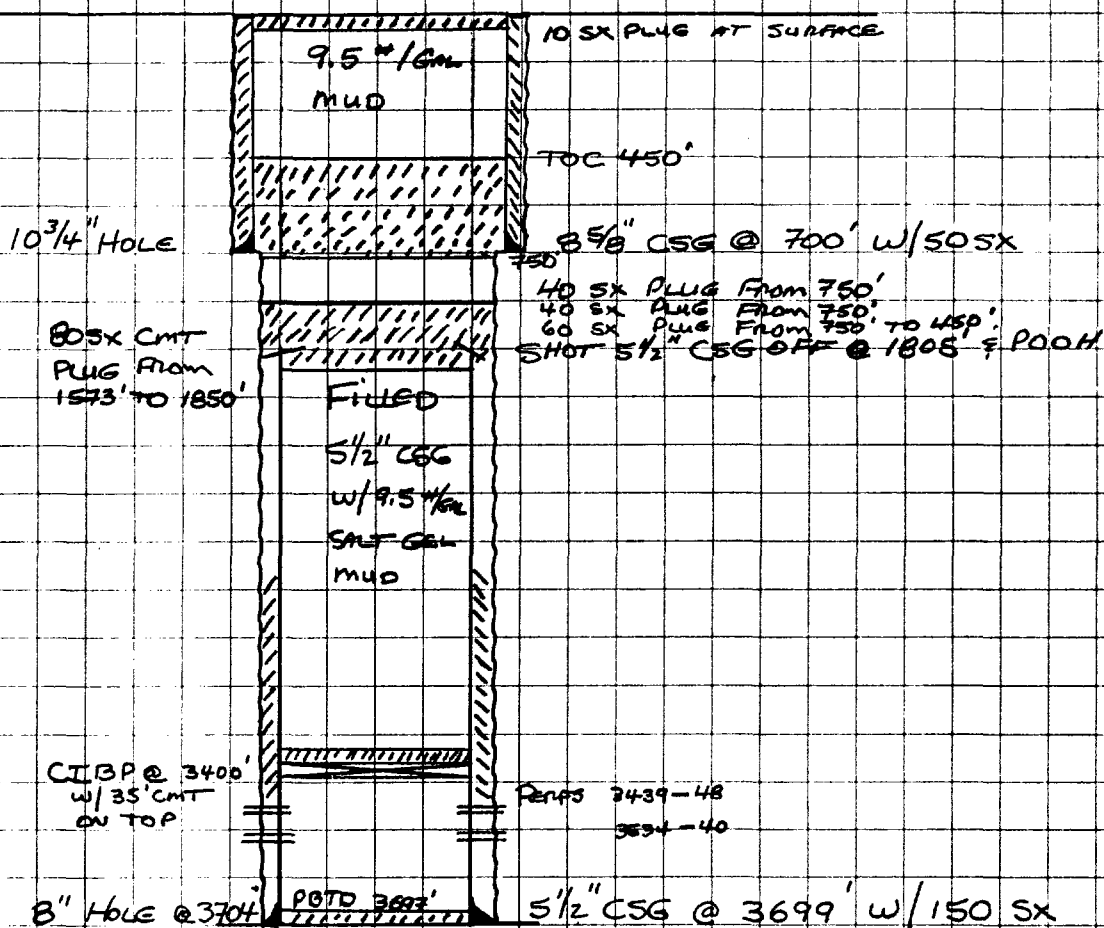 10 SX PLUG AT SURFACE
9.5 #/GAL
MUD
TOC 450'
10 3/4" HOLE
8 5/8" CSG @ 700' W/50 SX
750'
40 SX PLUG FROM 750'
40 SX PLUG FROM 750'
60 SX PLUG FROM 750' TO 450'
SHOT 5 1/2" CSG OFF @ 1805' & POOH
80 SX CMT
PLUG FROM
1573' TO 1850'
FILLED
5 1/2" CSG
W/ 9.5 #/GAL
SALT GEL
MUD
CIBP @ 3400'
W/ 35' CMT
ON TOP
PERFS 3439-48
3534-40
8" HOLE @ 3704'
PBTD 3697'
5 1/2" CSG @ 3699' W/150 SX